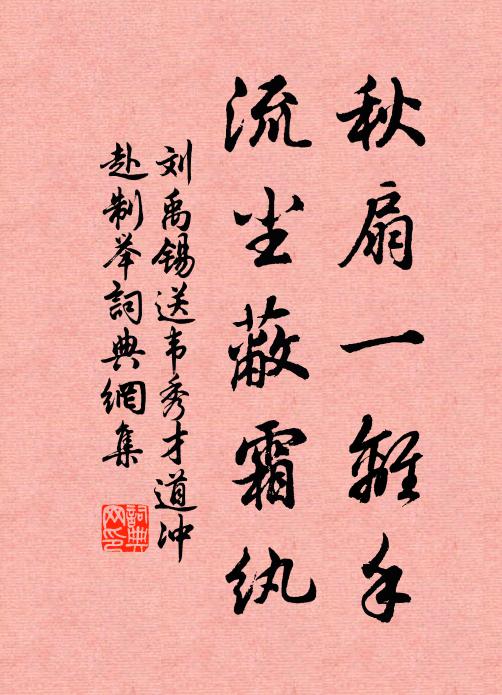 秋扇一離手
流尘蔽霜纨
刘禹锡送韦秀才道冲
赴制举詞典網集
詞典网印